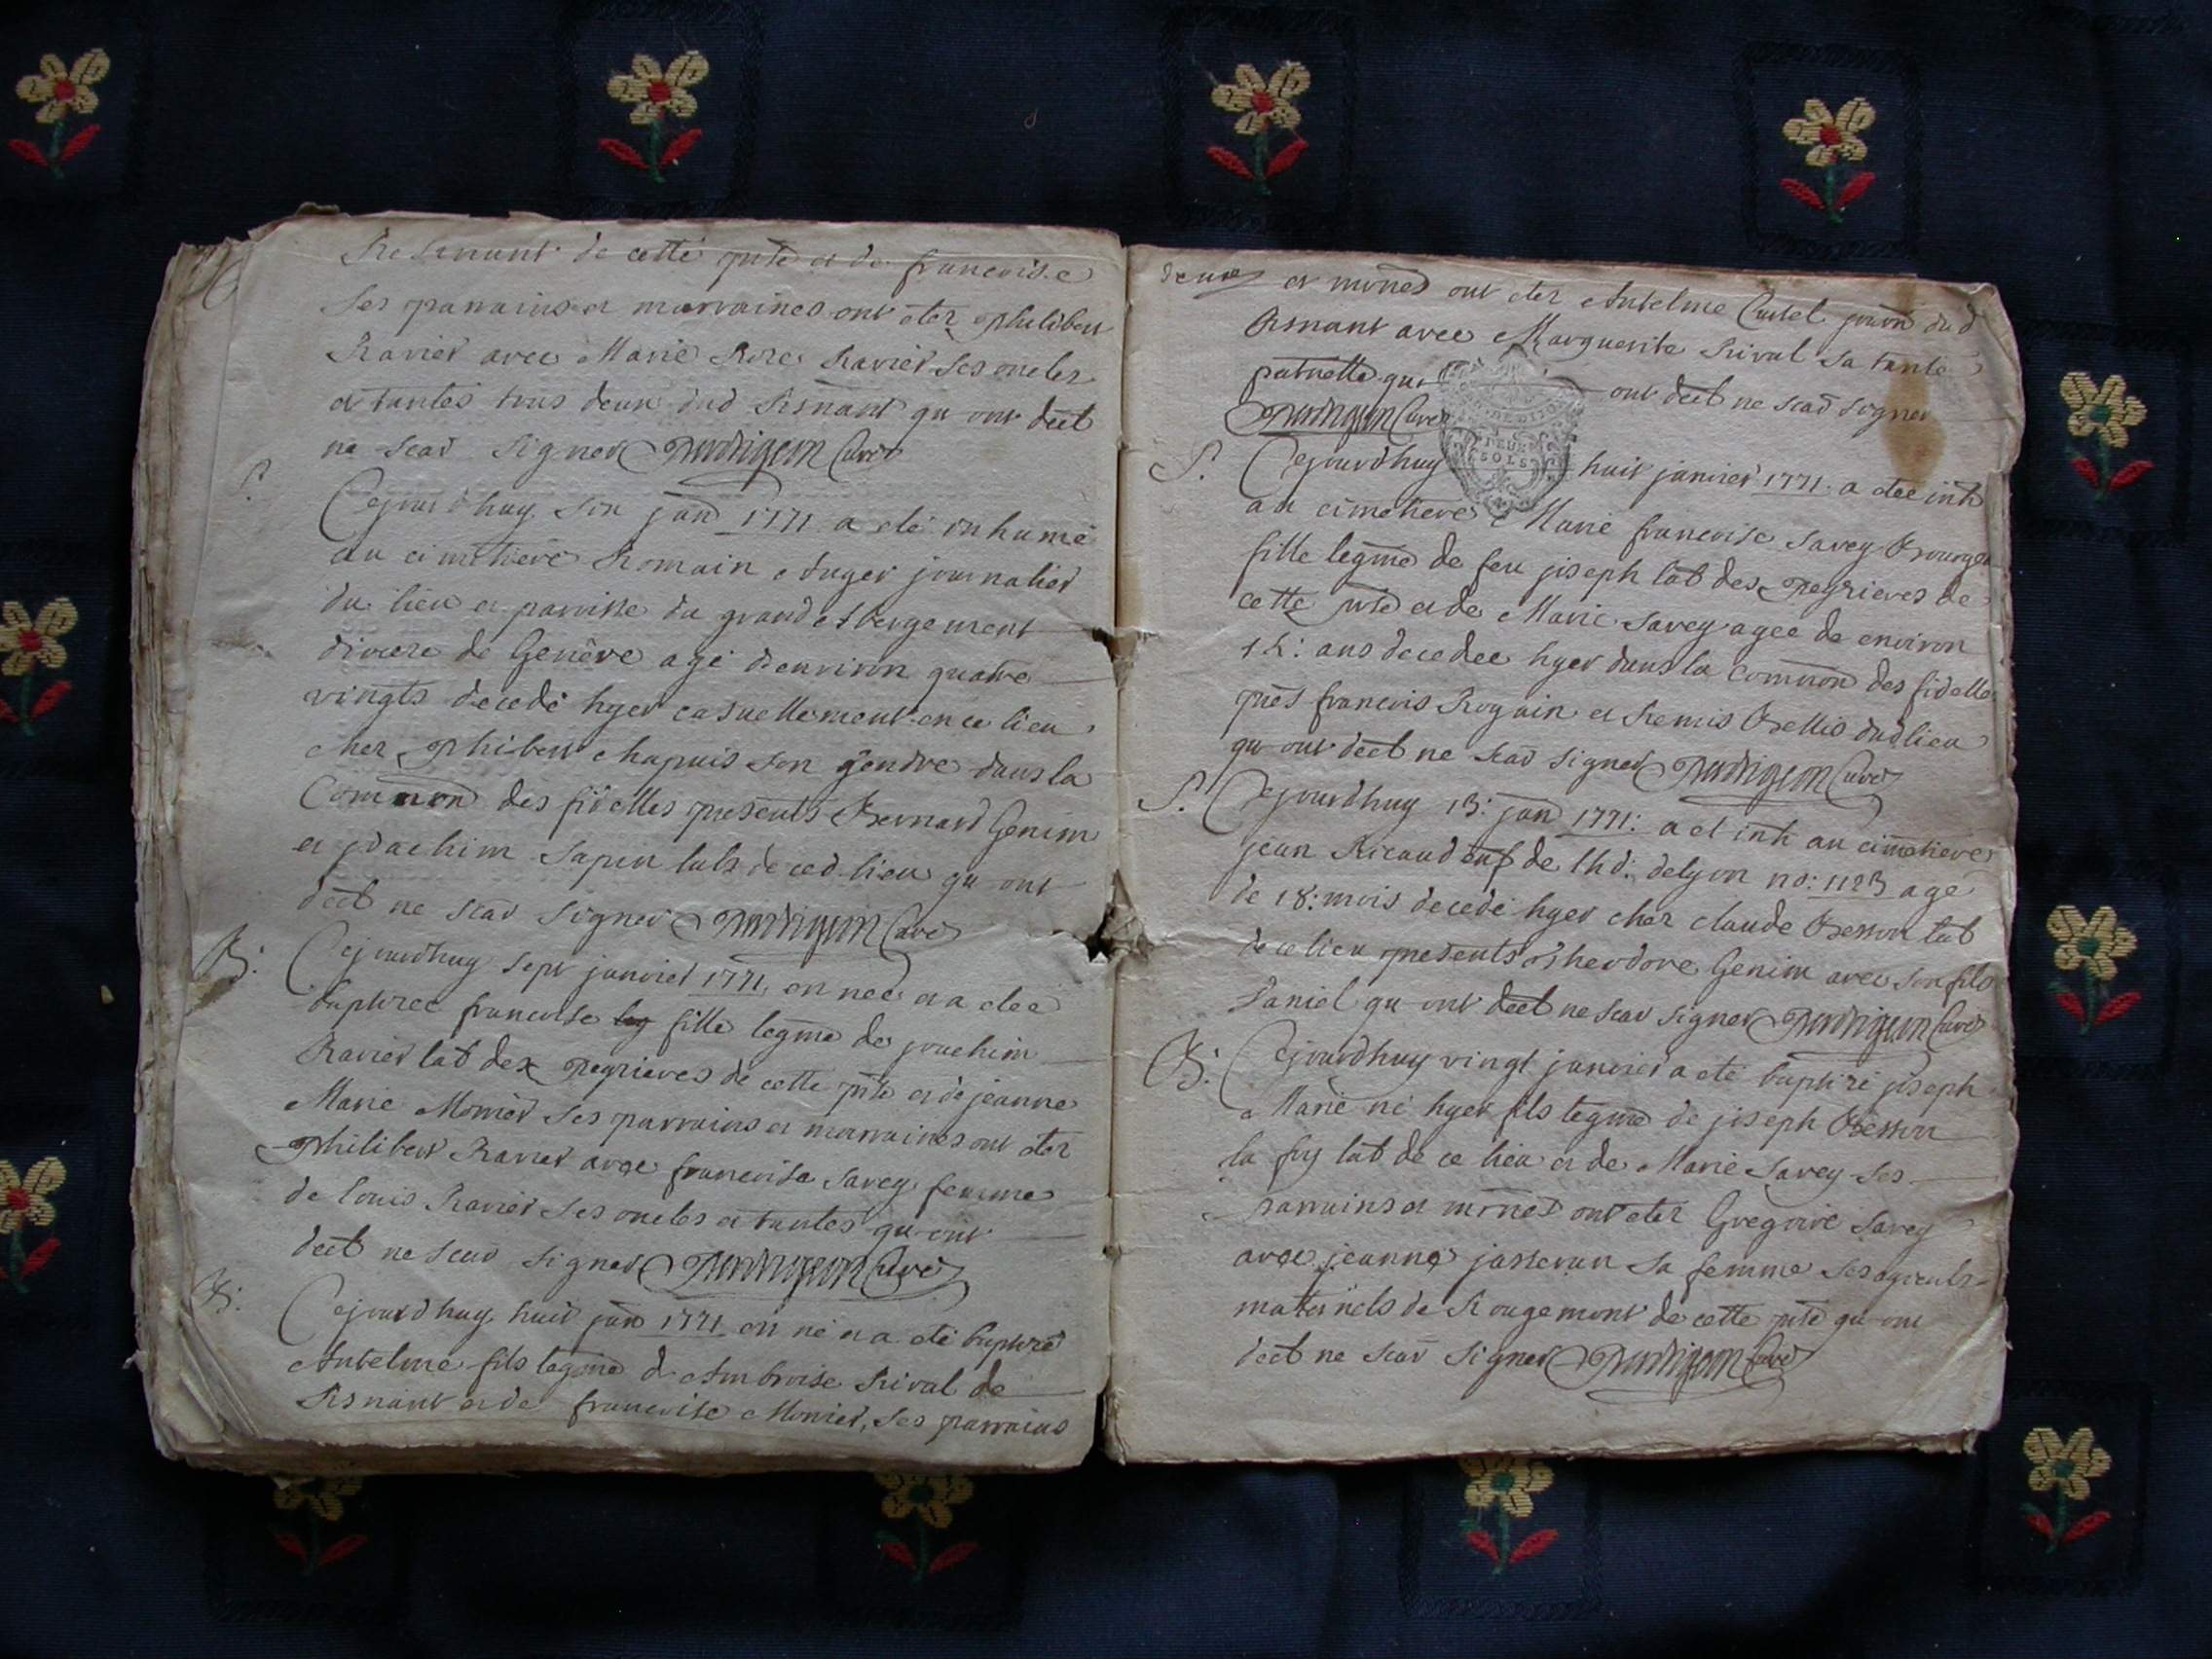 de cette pnte et de francoise
Ses parrains et marraines ont eter philibert
Ravier avec Marie Rose Ravier Ses oncles
et tantes tous deux dud qu ont deet
ne scav signer Perdrigeon Curé
S.
Cejourdhuy Six janv 1771 a eté inhumé
au cimetiere Romain Auger journalier
du lieu et parroisse du grand Abergement
diocese de Genêve agé denviron quatre
vingts decedé hyer casuellement en ce lieu
chez phibert chapuis son gendre dans la
Common des fidelles presents Bernard Genin
et joachim Sapin labr de ced lieu qu ont
deet ne scav signer Perdrigeon Curé
B:
Cejourdhuy sept janvier 1771 en neé et a eteé
baptizeé francoise fille legme de joachim
Ravier lab des peyrieres de cette pnte et de jeanne
Marie Monier Ses parrains et marraines ont eter
philibert Ravier avec francoise Savey femme
de louis Ravier Ses oncles et tantes qu ont
deet ne scav signer Perdrigeon Curé
B:
Cejourdhuy huit janv 1771 en né et a eté baptizé
Antelme fils legme d Ambroise Rival de
et de francoise Monier, Ses parrains
et mrines ont eter Antelme Cartel dud
avec Marguerite Rival Sa tante
paternelle qui ont deet ne scav signer
Perdrigeon Curé
S.
Cejourdhuy huit janvier 1771 a eteé inh
au cimetiere Marie francoise Savey
fille legme de feu joseph lab des peyrieres de
cette pnte et de Marie Savey ageé de environ
ans decedeé hyer dans la Common des fidelles
pnes francois Rogain et Remis Bellio dud lieu
qu ont deet ne scav signer Perdrigeon Curé
S.
Cejourdhuy 13: janv 1771: a et inh au cimetiere
jean Ricaud enf de lhd: delyon no: 1123 agé
de 18: mois decedé hyer chez claude Besson lab
de ce lieu presents theodore Genin avec son fils
Daniel qu ont deet ne scav signer Perdrigeon Curé
B:
Cejourdhuy vingt janvier a eté baptizé joseph
Marie né hyer fils legme de joseph Besson
la lab de ce lieu et de Marie Savey Ses
parrains et mrnes ont eter Gregoire Savey
avec jeanne jasseran Sa femme Ses ayeuls
maternels de Rougemont de cette pnte qu ont
deet ne scav signer Perdrigeon Curé